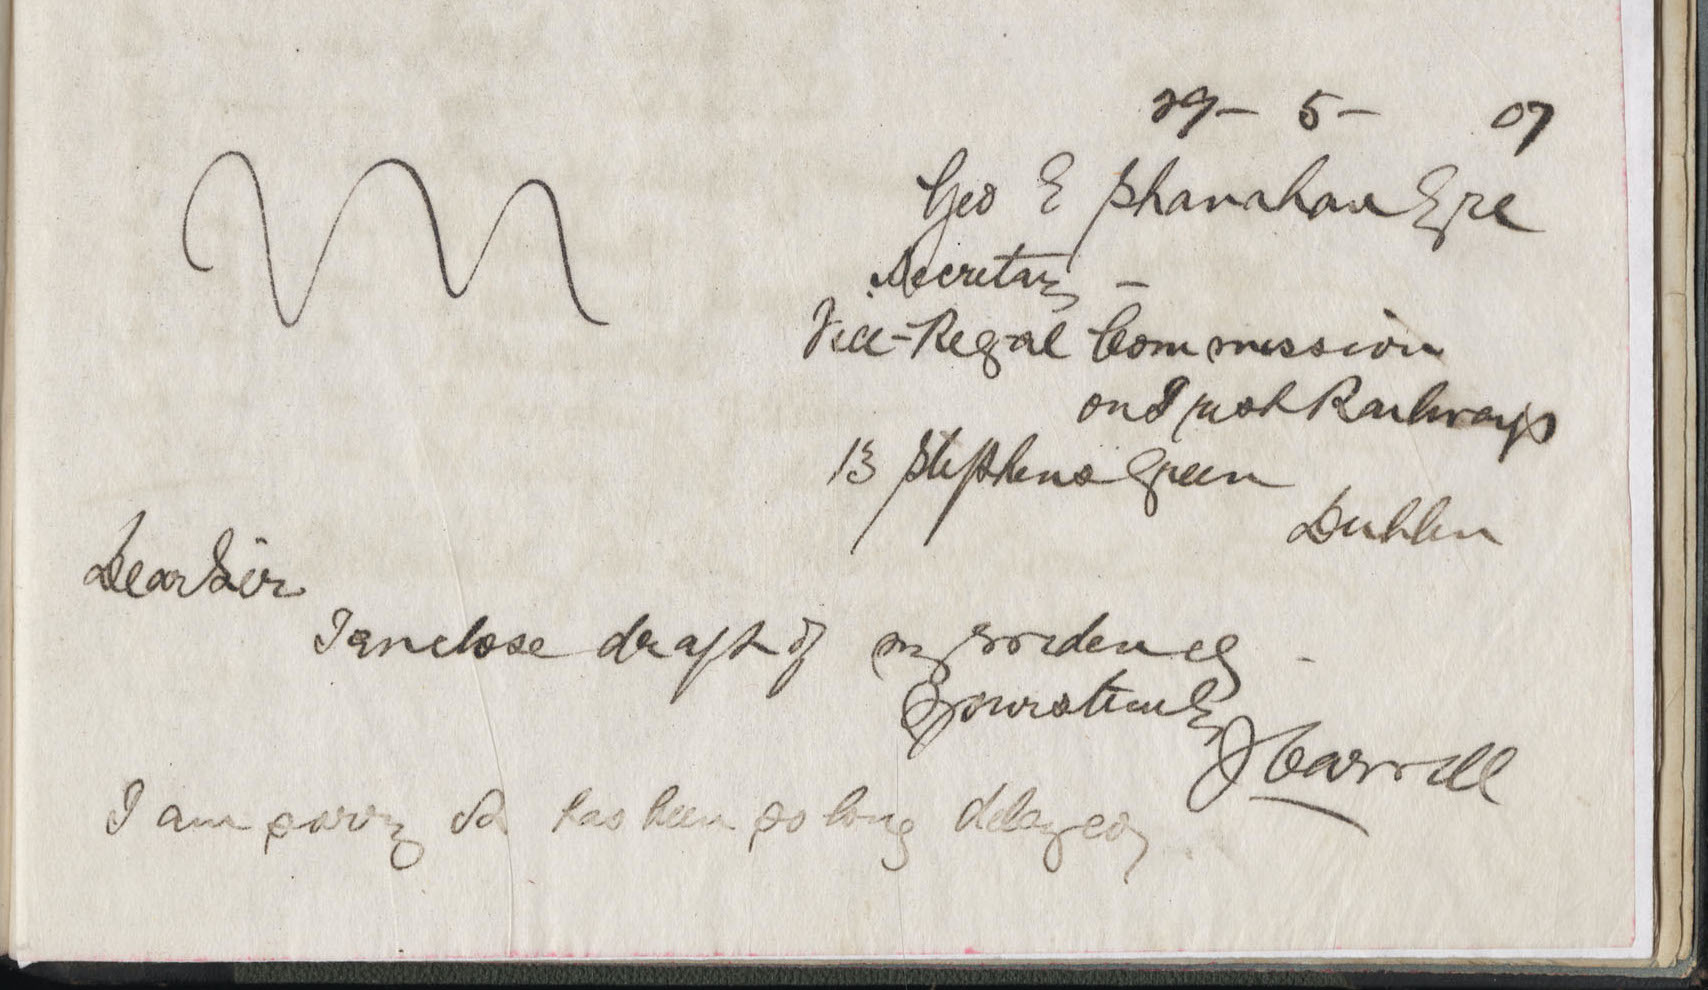 29- 5- 07
Geo E Shanahan Esqre
Secretary -
Vice-Regal Commission
on Irish Railways
13 Stephens Green
Dublin
Dear Sir
I enclose draft of my evidence
Yours truly
J Carroll
I am sorry it has been so long delayed